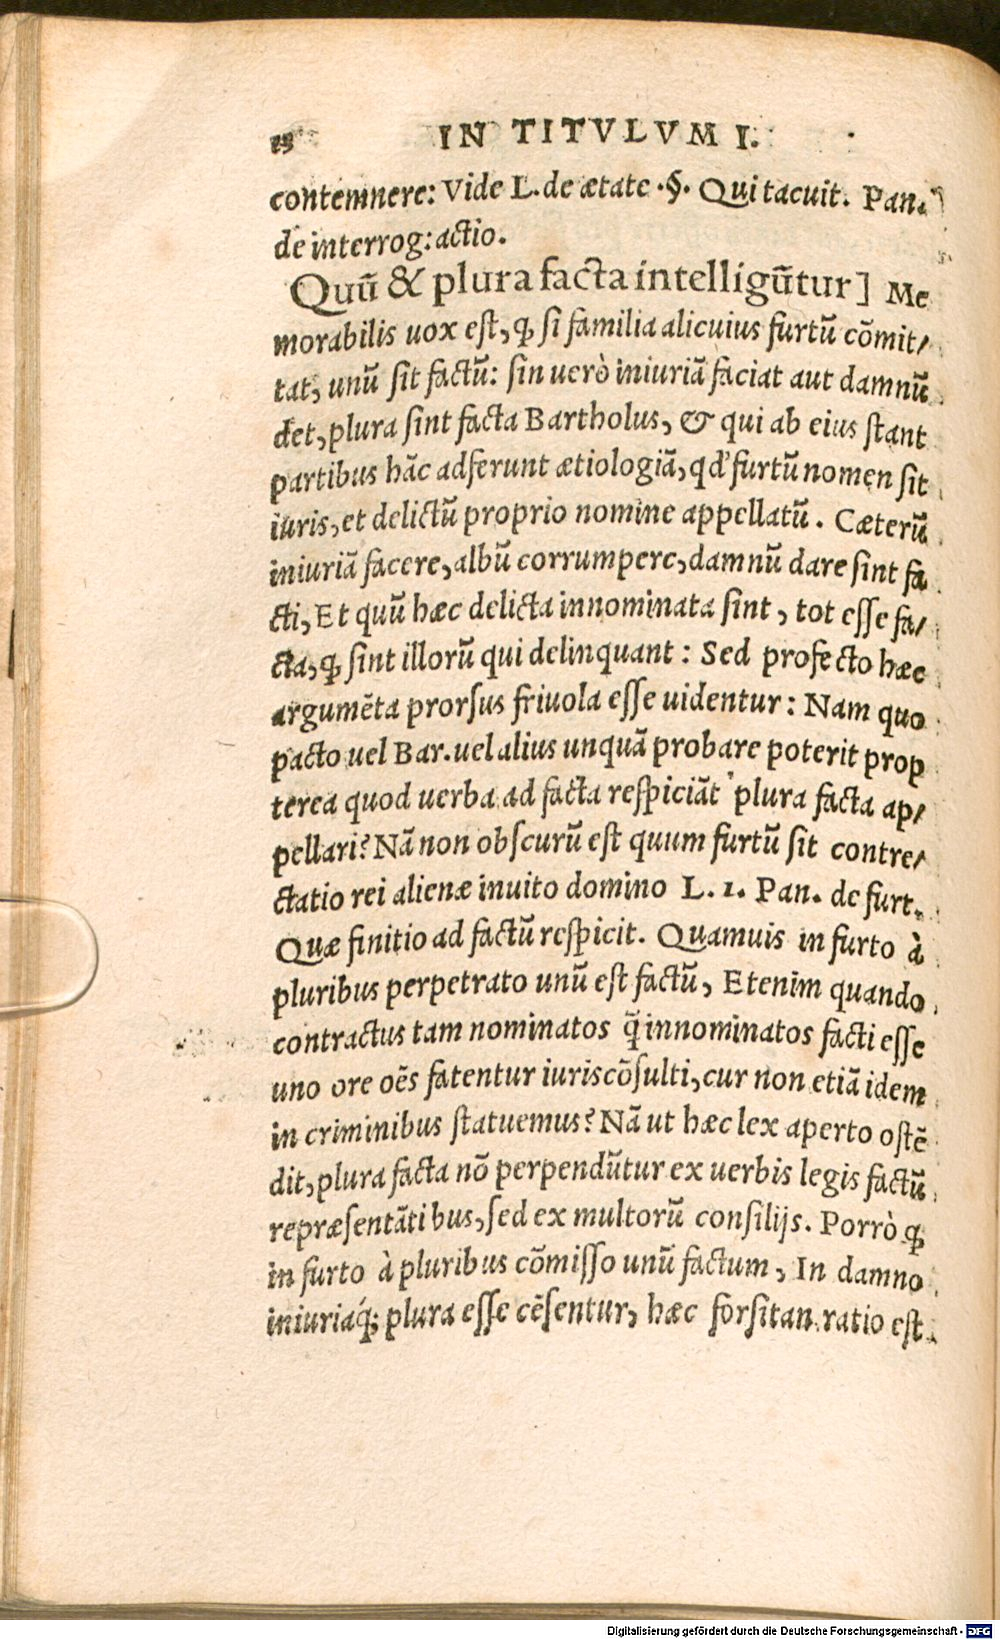 IN TITVLVM I.
contemnere: Vide L. de ætate .§. Qui tacuit. Pan.
de interrog: actio.
Quū & plura facta intelligūtur] Me
morabilis uox est, ꝙ si familia alicuius furtū cōmit/
tat, unū sit factū: sin uerò iniuriā faciat aut damnū
det, plura sint facta Bartholus, & qui ab eius stant
partibus hāc adferunt ætiologiā, qd' furtū nomen sit
iuris, et delictū proprio nomine appellatū. Cæterū
iniuriā facere, albū corrumpere, damnū dare sint fa
cti, Et quū hæc delicta innominata sint, tot esse fa/
cta, ꝙ sint illorū qui delinquant: Sed profecto hæc
argumēta prorsus friuola esse uidentur: Nam quo
pacto uel Bar. uel alius unquā probare poterit prop
terea quod uerba ad facta respiciāt plura facta ap/
pellari? Nā non obscurū est quum furtū sit contre/
ctatio rei alienæ inuito domino L. 1. Pan. de furt.
Quæ finitio ad factū respicit. Quamuis in furto à
pluribus perpetrato unū est factū, Etenim quando
contractus tam nominatos q̄ innominatos facti esse
uno ore oēs fatentur iuriscōsulti, cur non etiā idem
in criminibus statuemus? Nā ut hæc lex aperto ostē
dit, plura facta nō perpendūtur ex uerbis legis factū
repræsentātibus, sed ex multorū consilijs. Porrò ꝙ
in furto à pluribus cōmisso unū factum, In damno
iniuriáq; plura esse cēsentur, hæc forsitan ratio est
Digitalisierung gefördert durch die Deutsche Forschungsgemeinschaft - DFG